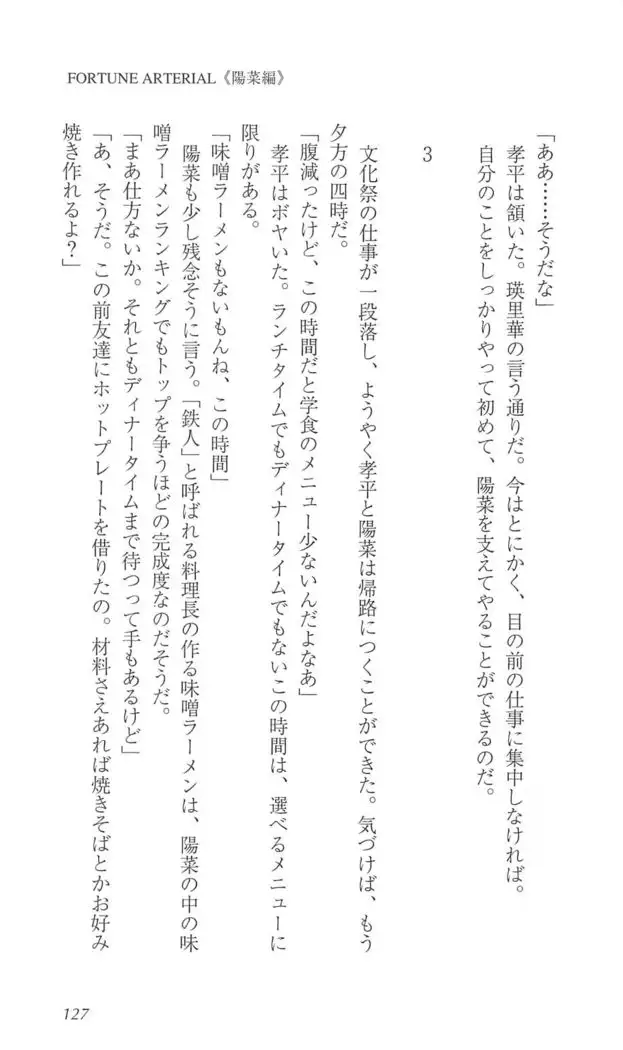 FORTUNE ARTERIAL《陽菜編》
「ああ……そうだな」
孝平は頷いた。瑛里華の言う通りだ。今はとにかく、目の前の仕事に集中しなければ。
自分のことをしっかりやって初めて、陽菜を支えてやることができるのだ。
3
文化祭の仕事が一段落し、ようやく孝平と陽菜は帰路につくことができた。気づけば、もう
夕方の四時だ。
「腹減ったけど、この時間だと学食のメニュー少ないんだよなあ」
孝平はボヤいた。ランチタイムでもディナータイムでもないこの時間は、選べるメニューに
限りがある。
「味噌ラーメンもないもんね、この時間」
陽菜も少し残念そうに言う。「鉄人」と呼ばれる料理長の作る味噌ラーメンは、陽菜の中の味
噌ラーメンランキングでもトップを争うほどの完成度なのだそうだ。
「まあ仕方ないか。それともディナータイムまで待つって手もあるけど」
「あ、そうだ。この前友達にホットプレートを借りたの。材料さえあれば焼きそばとかお好み
焼き作れるよ?」
127